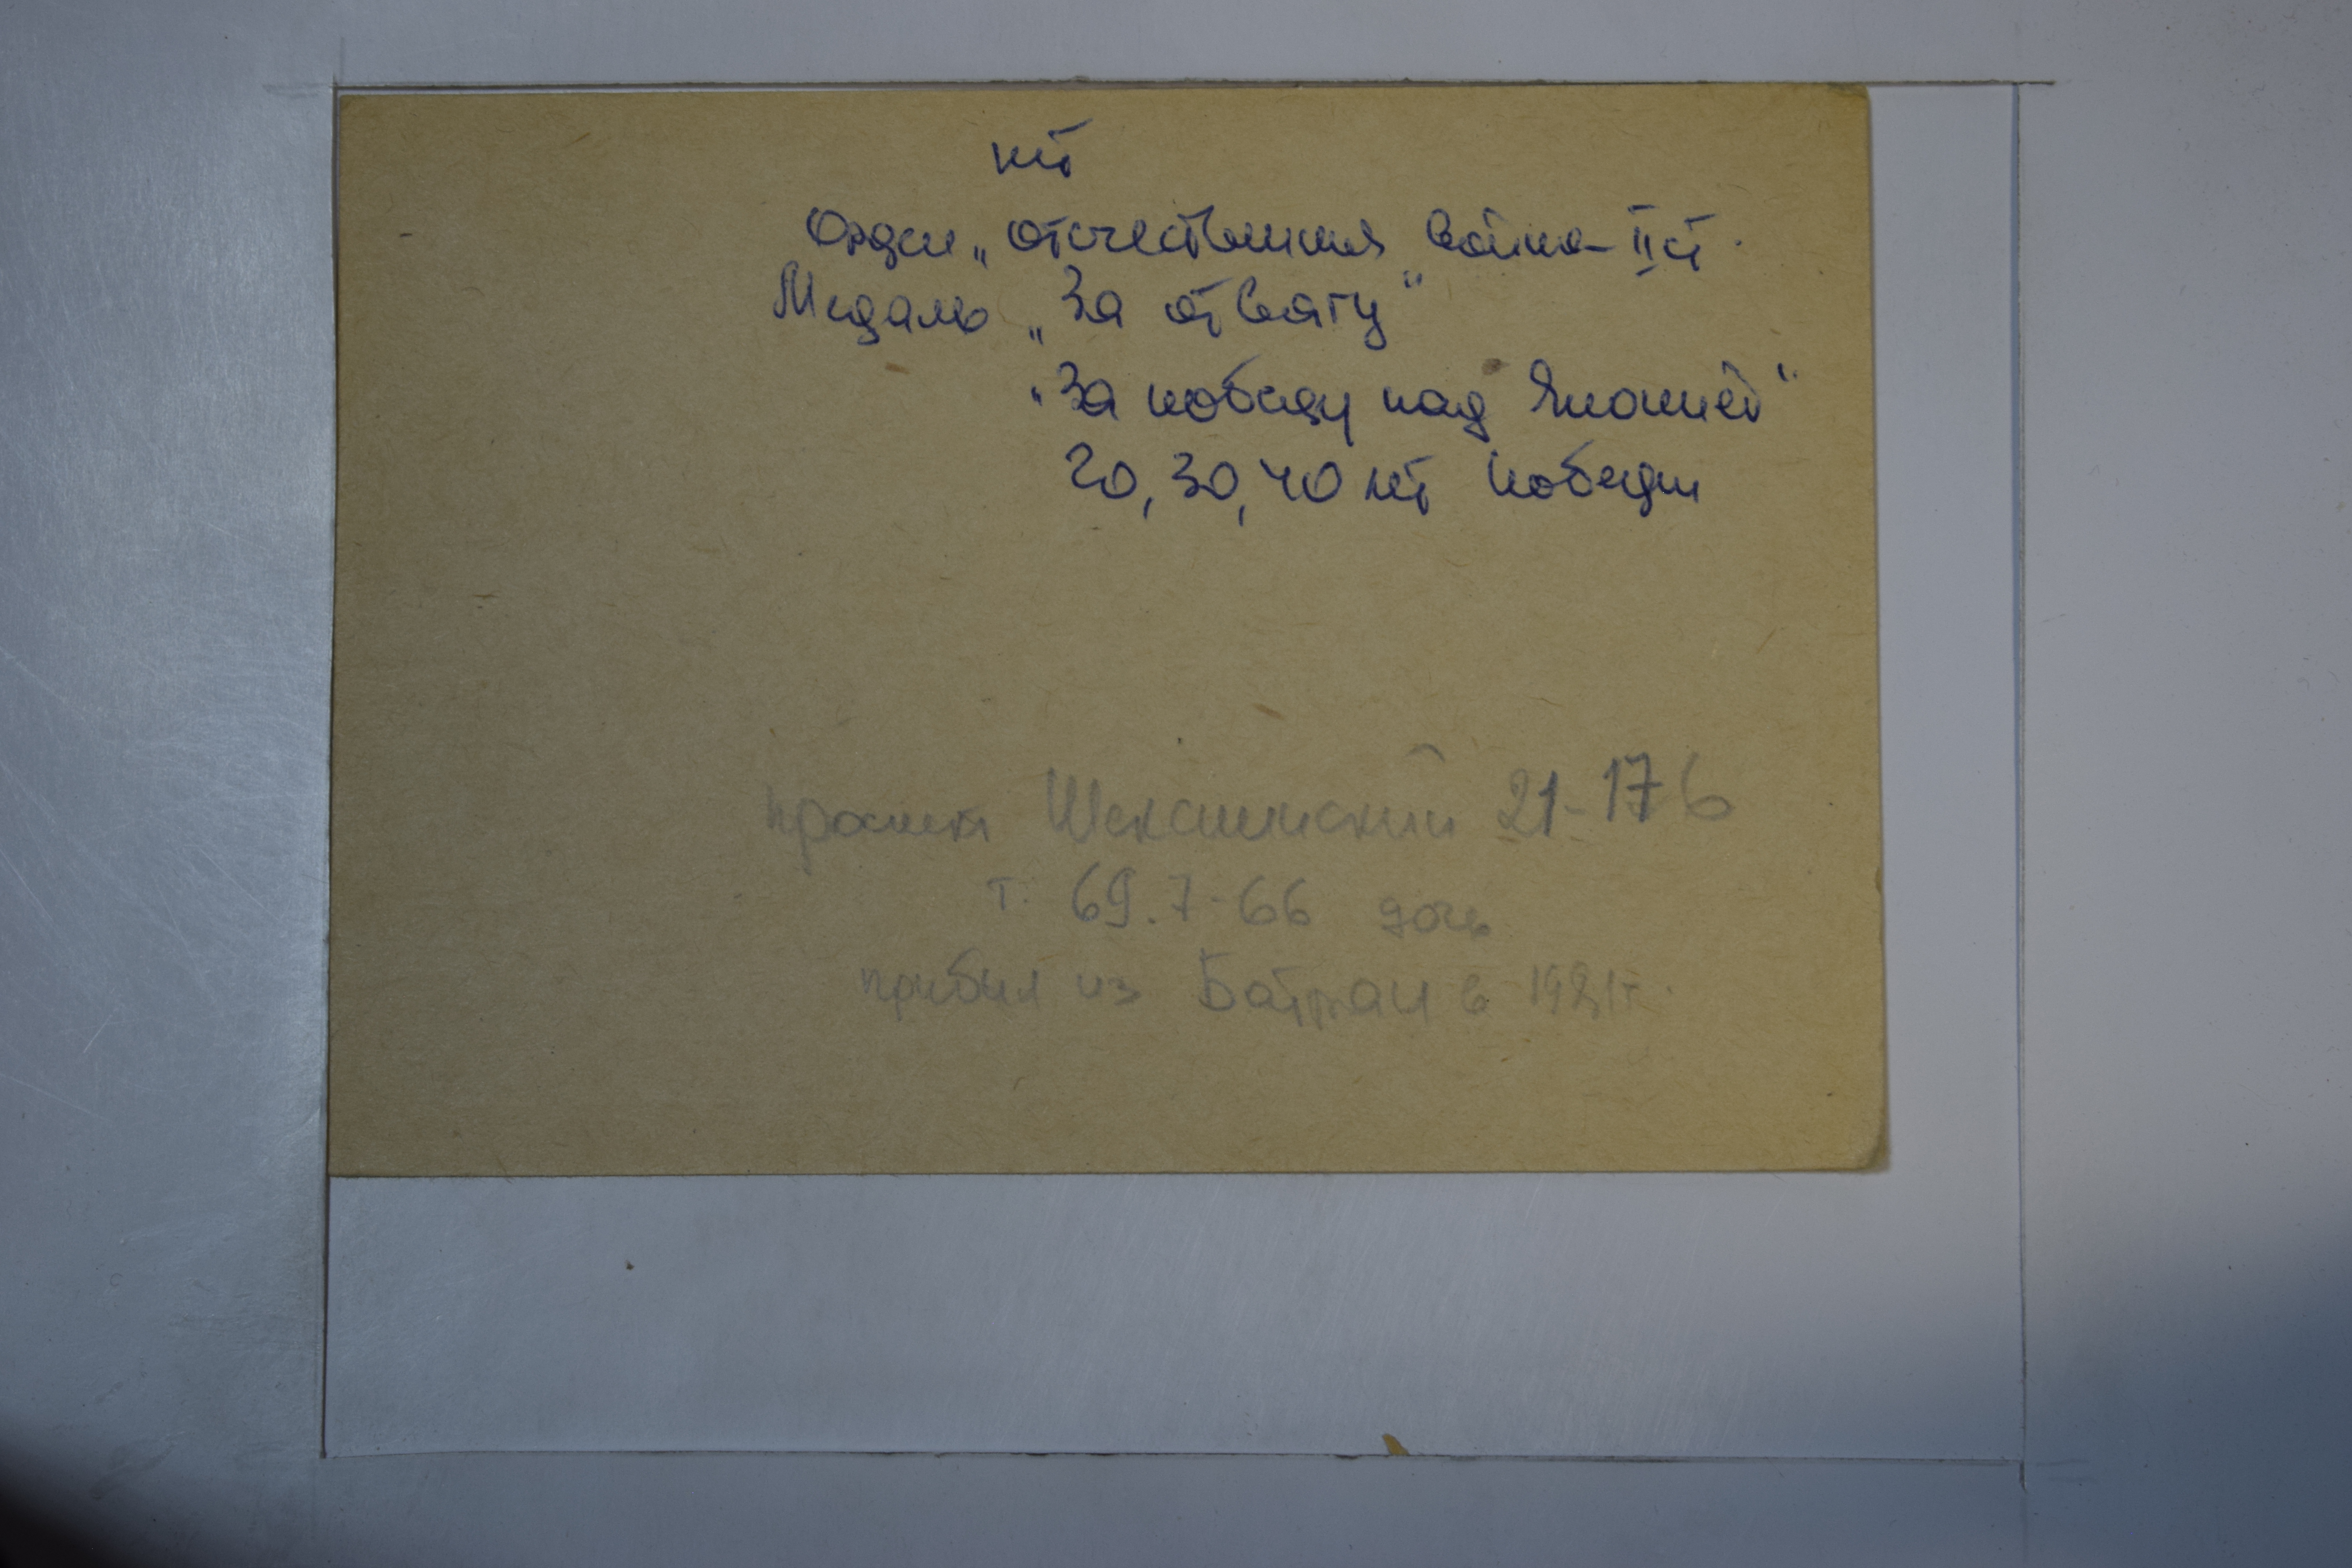 нет
Орден „отечественная война-II ст.
Медаль „За отвагу"
"За победу над Японией"
20, 30, 40 лет Победы
проспект Шекснинский 21-176
т. 69.7-66 дочь
прибыл из в